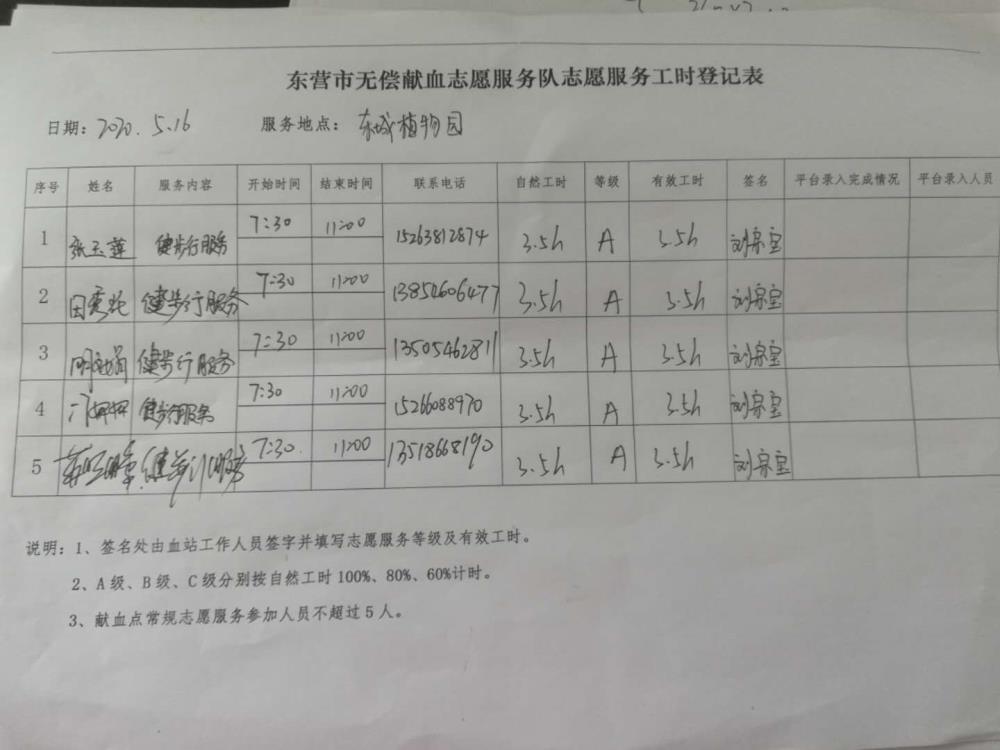 东营市无偿献血志愿服务队志愿服务工时登记表
日期：2020.5.16 服务地点：东城植物园
序号 姓名 服务内容 开始时间 结束时间 联系电话 自然工时 等级 有效工时 签名 平台录入完成情况 平台录入人员
1 张玉莲 健步行服务 7:30 11:00 15263812874 3.5h A 3.5h 刘宗宝
2 健步行服务 7:30 11:00 13854606477 3.5h A 3.5h 刘宗宝
3 健步行服务 7:30 11:00 13505462811 3.5h A 3.5h 刘宗宝
4 健步行服务 7:30 11:00 15266088970 3.5h A 3.5h 刘宗宝
5 健步行服务 7:30 11:00 13518668190 3.5h A 3.5h 刘宗宝
说明：1、签名处由血站工作人员签字并填写志愿服务等级及有效工时。
2、A级、B级、C级分别按自然工时100%、80%、60%计时。
3、献血点常规志愿服务参加人员不超过5人。